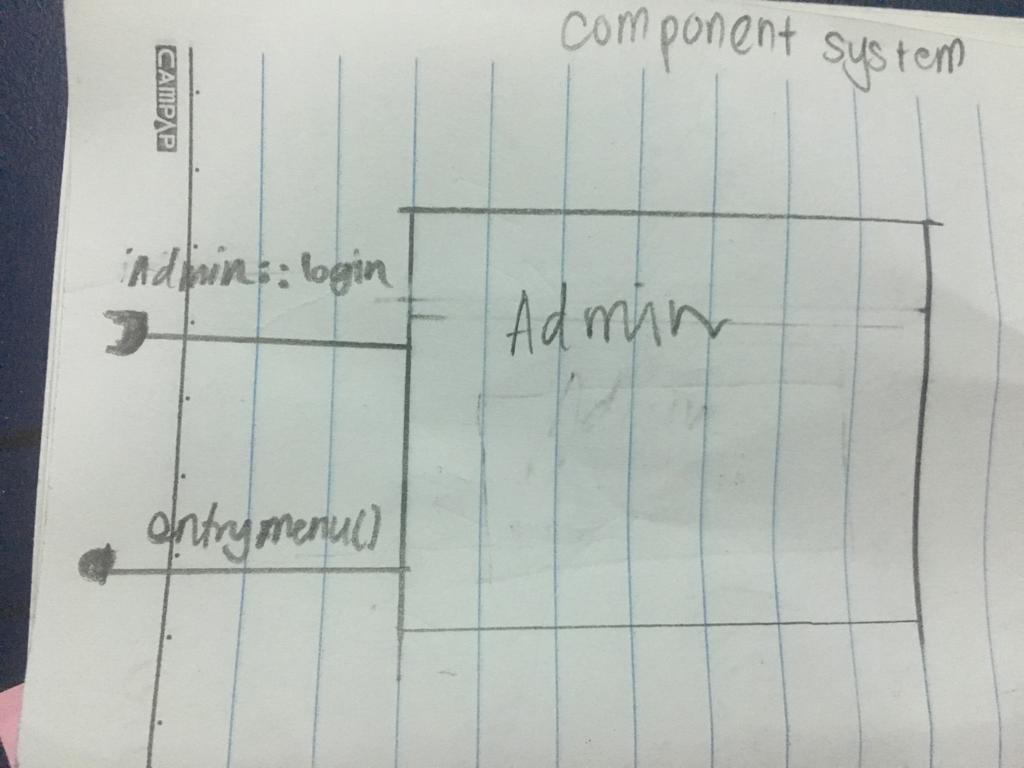 component system
CAMPAP
iAdmin::login
Admin
entrymenu()